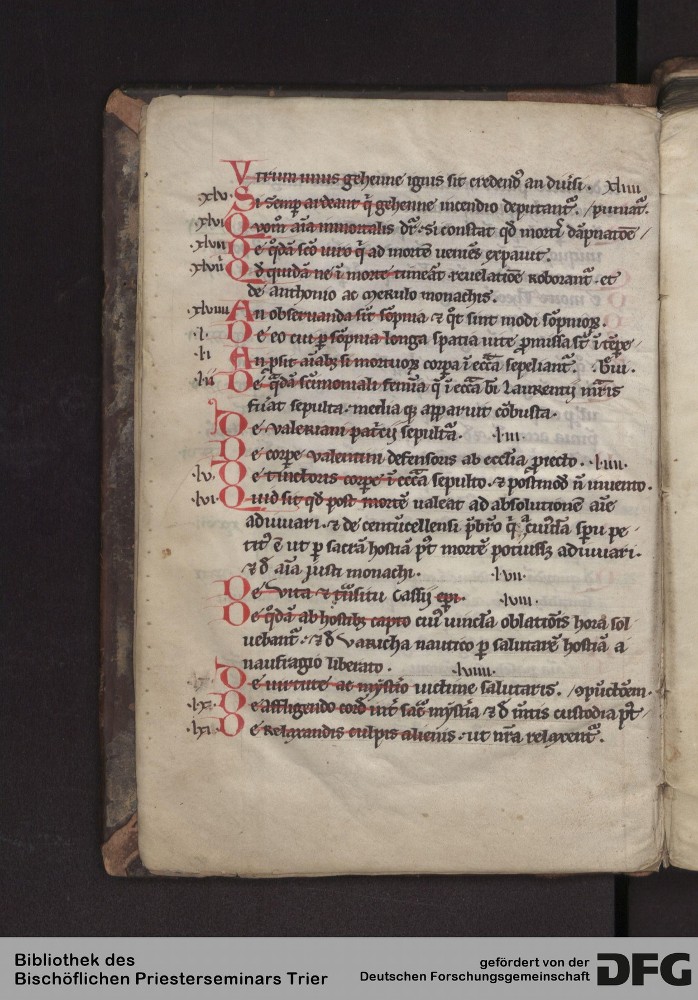 Vtrum unus gehenne ignis sit credendꝰ an diuisi. xliiii
xlv. Si semꝑ ardeant q̇ gehenne incendio deputantᷣ. / putnatᷣ.
xlvi Quom̅ aı̅a inmortalis dr̅. si constat qđ mortꝭ da̅pnatoe̅ /
xlvii De qͦda̅ sco̅ uiro q̇ ad morte̅ uenie̅s expauit.
xlviii Qđ quida̅ ne i̅ morte timea̅t reuelatioe̅ roborantᷣ. et
de anthonio ac merulo monachis.
xlviiii An obseruanda sit so̅pnia ⁊ qͦt sint modi so̅pnioꝝ.
.l. De eo cui ꝑ so̅pnia longa spatia uite ꝓmissa st̅ i̅ te̅pe
.li An ꝓsit aı̅abꝫ si mortuoꝝ corpa i̅ ecc̅a sepeliantᷣ. .
.lii De qͣda̅ sc̅imoniali femı̅a q̅ i̅ ecc̅a bı̅ Laurentij mr̅is
fu̅at sepulta. media qꝫ apparuit co̅busta.
De ualeriani patⁱcij sepultᷓa. .liii.
De corpe ualentini defensoris ab ecclia ꝓiecto. .liiii.
.lv. De tinctoris corpe i̅ ecc̅a sepulto. ⁊ postmodꝰ n̅ inuento.
.lvi. Quid sit qđ post morte̅ ualeat ad absolutione̅ aı̅e
adiuuari. ⁊ de centu̅cellensi p̅bro q̇ a cuiꝰda̅ spu pe
titꝰ e̅ ut ꝑ sacra̅ hostia̅ pꝰt morte̅ potuisset adiuuari.
⁊ đ aı̅a iusti monachi. .lvii.
De uita ⁊ tⁿsitu Cassij epi. .lviii.
De qͦda̅ ab hostibꝫ capto cuiꝰ uincla oblatio̅is hora sol
uebantᷣ. ⁊ đ Varicha nautico ꝑ salutare̅ hostia̅ a
naufragio liberato. .lviiii.
.lx. De uirtute ac mysterio uictime salutaris. / ꝯpuctoe̅m.
.lxi. De affligendo cordꝭ int̅ sac̅ mystia ⁊ đ me̅tis custodia pꝰt /
.lxii. De relaxandis culpis alienis. ut nr̅a relaxentᷣ.
Bibliothek des
Bischöflichen Priesterseminars Trier
gefördert von der
Deutschen Forschungsgemeinschaft
DFG